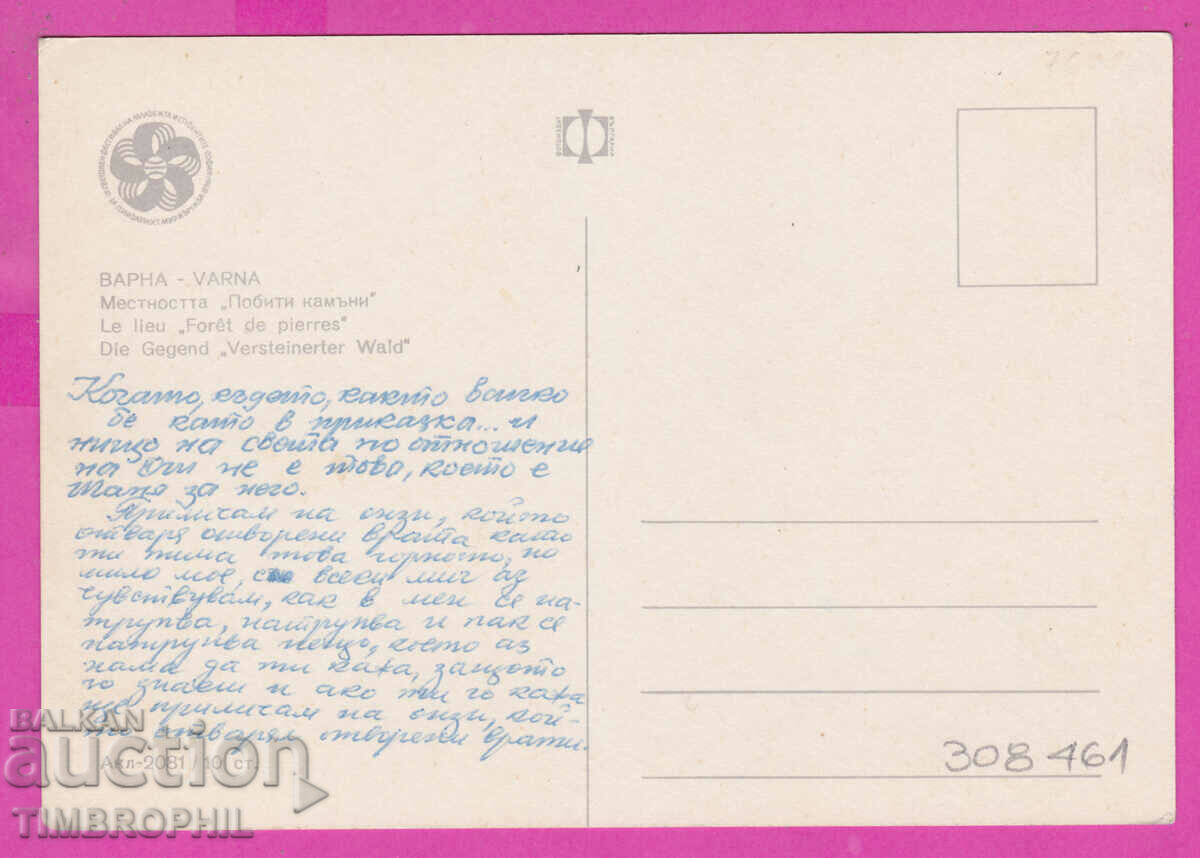 ВАРНА - VARNA
Местността „Побити камъни"
Le lieu „Forêt de pierres"
Die Gegend „Versteinerter Wald"
Когато, където, както всичко
бе като в приказка... и
нищо на света по отношение
на Очи не е това, което е
Таня за него.
Приличам на онзи, който
отваря отворени врата като
ти пиша това горното, но
мило мое, всеки миг аз
чувствувам, как в мен се на-
трупва, натрупва и пак се
натрупва нещо, което аз
няма да ти кажа, защото
го знаеш и ако ти го кажа
ще приличам на онзи, кой-
то отварял отворени врати.
Акл-2081/10 ст.
308461
BALKAN
auction
TIMBROPHIL
ФОТОИЗДАТ
БЪЛГАРИЯ